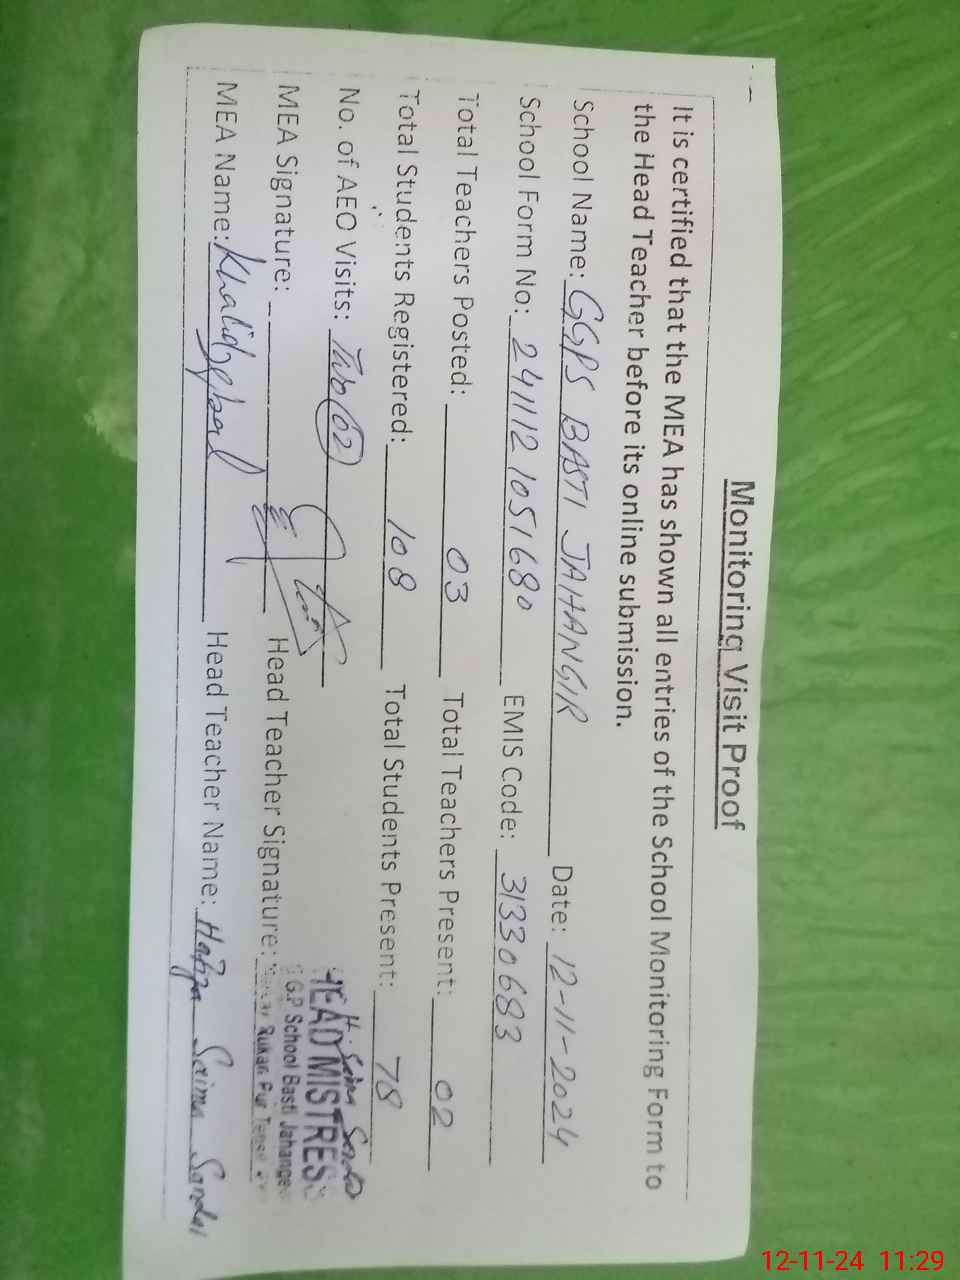 Monitoring Visit Proof
It is certified that the MEA has shown all entries of the School Monitoring Form to
the Head Teacher before its online submission.
School Name: GGPS BASTI JAHANGIR Date: 12-11-2024
School Form No: 2411121051680 EMIS Code: 31330683
Total Teachers Posted: 03 Total Teachers Present: 02
Total Students Registered: 108 Total Students Present: 78
No. of AEO Visits: Two (02)
HEAD MISTRESS
G.P School Basti Jahange
MEA Signature: Head Teacher Signature: Rukan Pur
MEA Name: Khalid Iqbal Head Teacher Name: Hafiza Saima Sardar
12-11-24 11:29